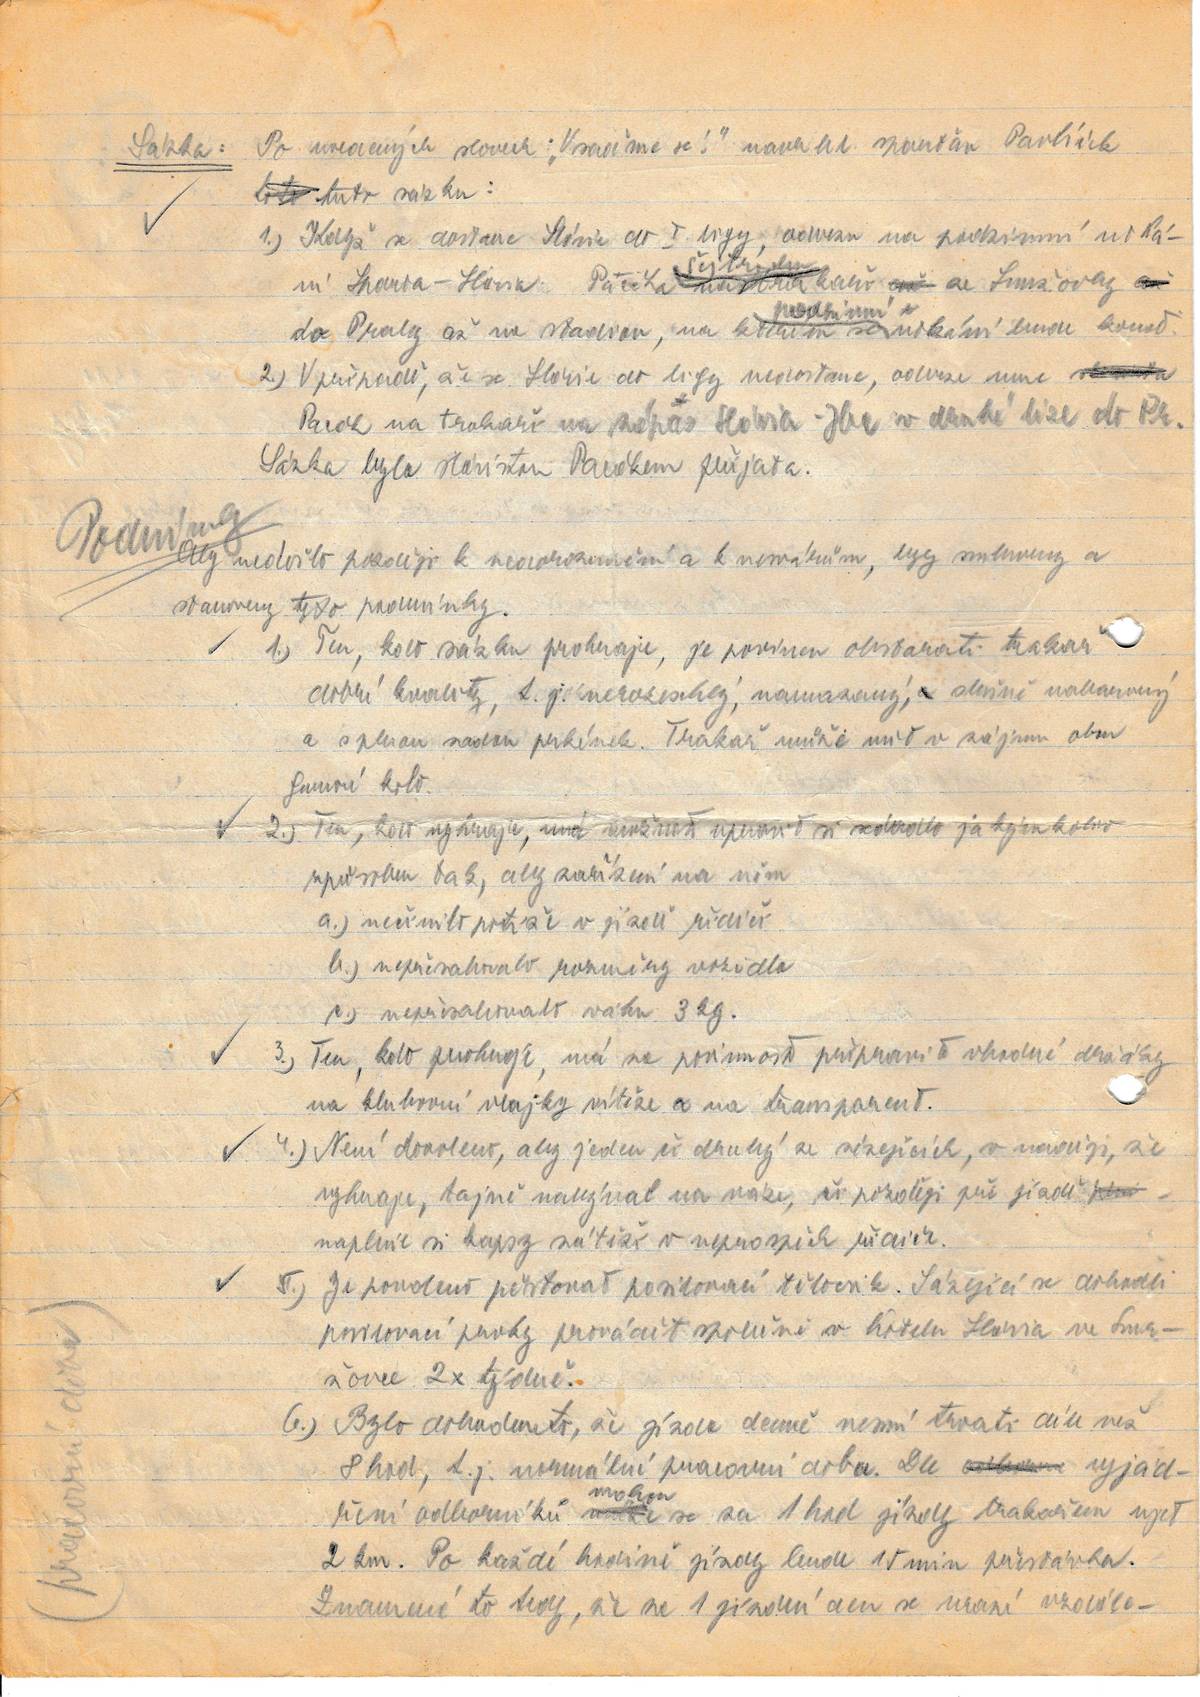 Sázka: Po uvedených slovech: „Vsaďme se!" navrhl sparťan Pavlíček
tuto sázku:
1.) Když se dostane Slávie do I. ligy, odvezu na podzimní utká-
ní Sparta-Slávia Pačíka trakaři ze Smržovky
do Prahy až na stadion, na kterém podzimní utkání bude konat.
2.) V případě, že se Slávie do ligy nedostane, odveze mne
na trakaři na zápas Slávia - Jbc v druhé lize do Pr.
Sázka byla slávistou přijata.
Podmínky
Aby nedošlo později k nedorozumění a k nesvárům, byly smluveny a
stanoveny tyto podmínky.
1.) Ten, kdo sázku prohraje, je povinen obstarati trakař
dobré kvality, t. j. nerozeschlý, namazaný, slušně nabarvený
a s plnou sadou prkének. Trakař může mít v zájmu obou
gumové kolo.
2.) Ten, kdo vyhraje, má možnost upravit si sedadlo jakýmkoliv
způsobem tak, aby zařízení na něm
a.) nečinilo potíže v jízdě řidiči
b.) nepřesahovalo rozměry vozidla
c.) nepřesahovalo váhu 3 kg.
3.) Ten, kdo prohraje, má za povinnost připravit vhodné držáky
na klubovní vlajky vítěze a na transparent.
4.) Není dovoleno, aby jeden či druhý ze sázejících, v naději, že
vyhraje, tajně nabýval na váze, či později při jízdě
naplnil si kapsy zátěží v neprospěch řidiče.
5.) Je povoleno pěstovat posilovací tělocvik. Sázející se dohodli
posilovací prvky provádět společně v hotelu Slávia ve Smr-
žovce 2x týdně.
6.) Bylo dohodnuto, že jízda denně nesmí trvati déle než
8 hod, t. j. normální pracovní doba. Dle vyjád-
ření odborníků mohou se za 1 hod jízdy trakařem ujet
2 km. Po každé hodině jízdy bude 15 min přestávka.
Znamená to tedy, že za 1 jízdní den se urazí vzdále-
(pracovní doba)